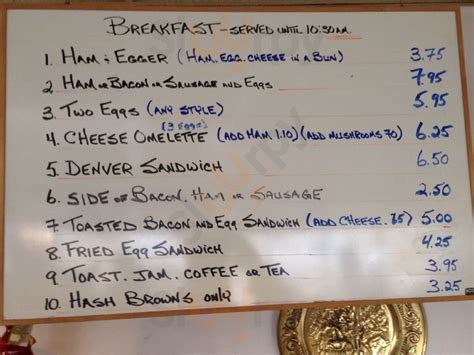 BREAKFAST - SERVED UNTIL 10:30AM
1. HAM & EGGER (HAM. EGG. CHEESE IN A BUN) 3.75
2 HAM OR BACON OR SAUSAGE AND EGGS 7.95
3. TWO EGGS (ANY STYLE) 5.95
(3 EGGS)
4. CHEESE OMELETTE (ADD HAM. 1.10) (ADD MUSHROOMS 70) 6.25
5. DENVER SANDWICH 6.50
6. SIDE OF BACON, HAM OR SAUSAGE 2.50
7. TOASTED BACON AND EGG SANDWICH (ADD CHEESE .75) 5.00
8. FRIED EGG SANDWICH 4.25
9 TOAST. JAM. COFFEE OR TEA 3.95
10. HASH BROWNS ONLY 3.25